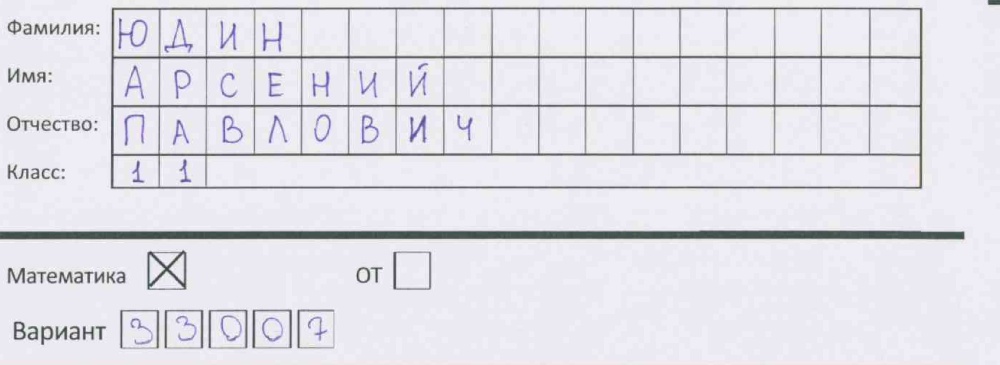 Фамилия: ЮДИН
Имя: АРСЕНИЙ
Отчество: ПАВЛОВИЧ
Класс: 11
Математика ☒ ОТ ☐
Вариант 33007